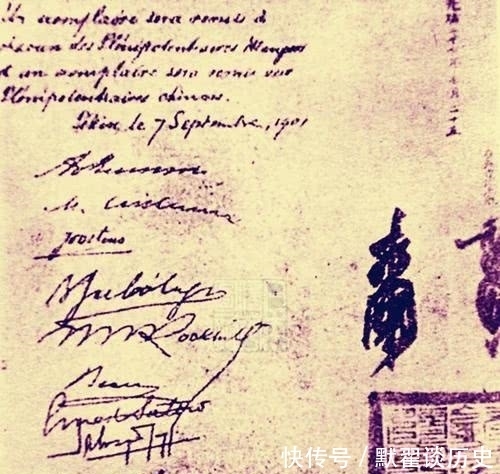 Un exemplaire sera remis à
chacun des Plénipotentiaires étrangers
et un exemplaire sera remis aux
Plénipotentiaires chinois.
Pékin, le 7 Septembre, 1901
Joostens
W W Rockhill
Beau
Ernest Satow
光緒二十七年七月二十五
快传号 / 默翟谈历史